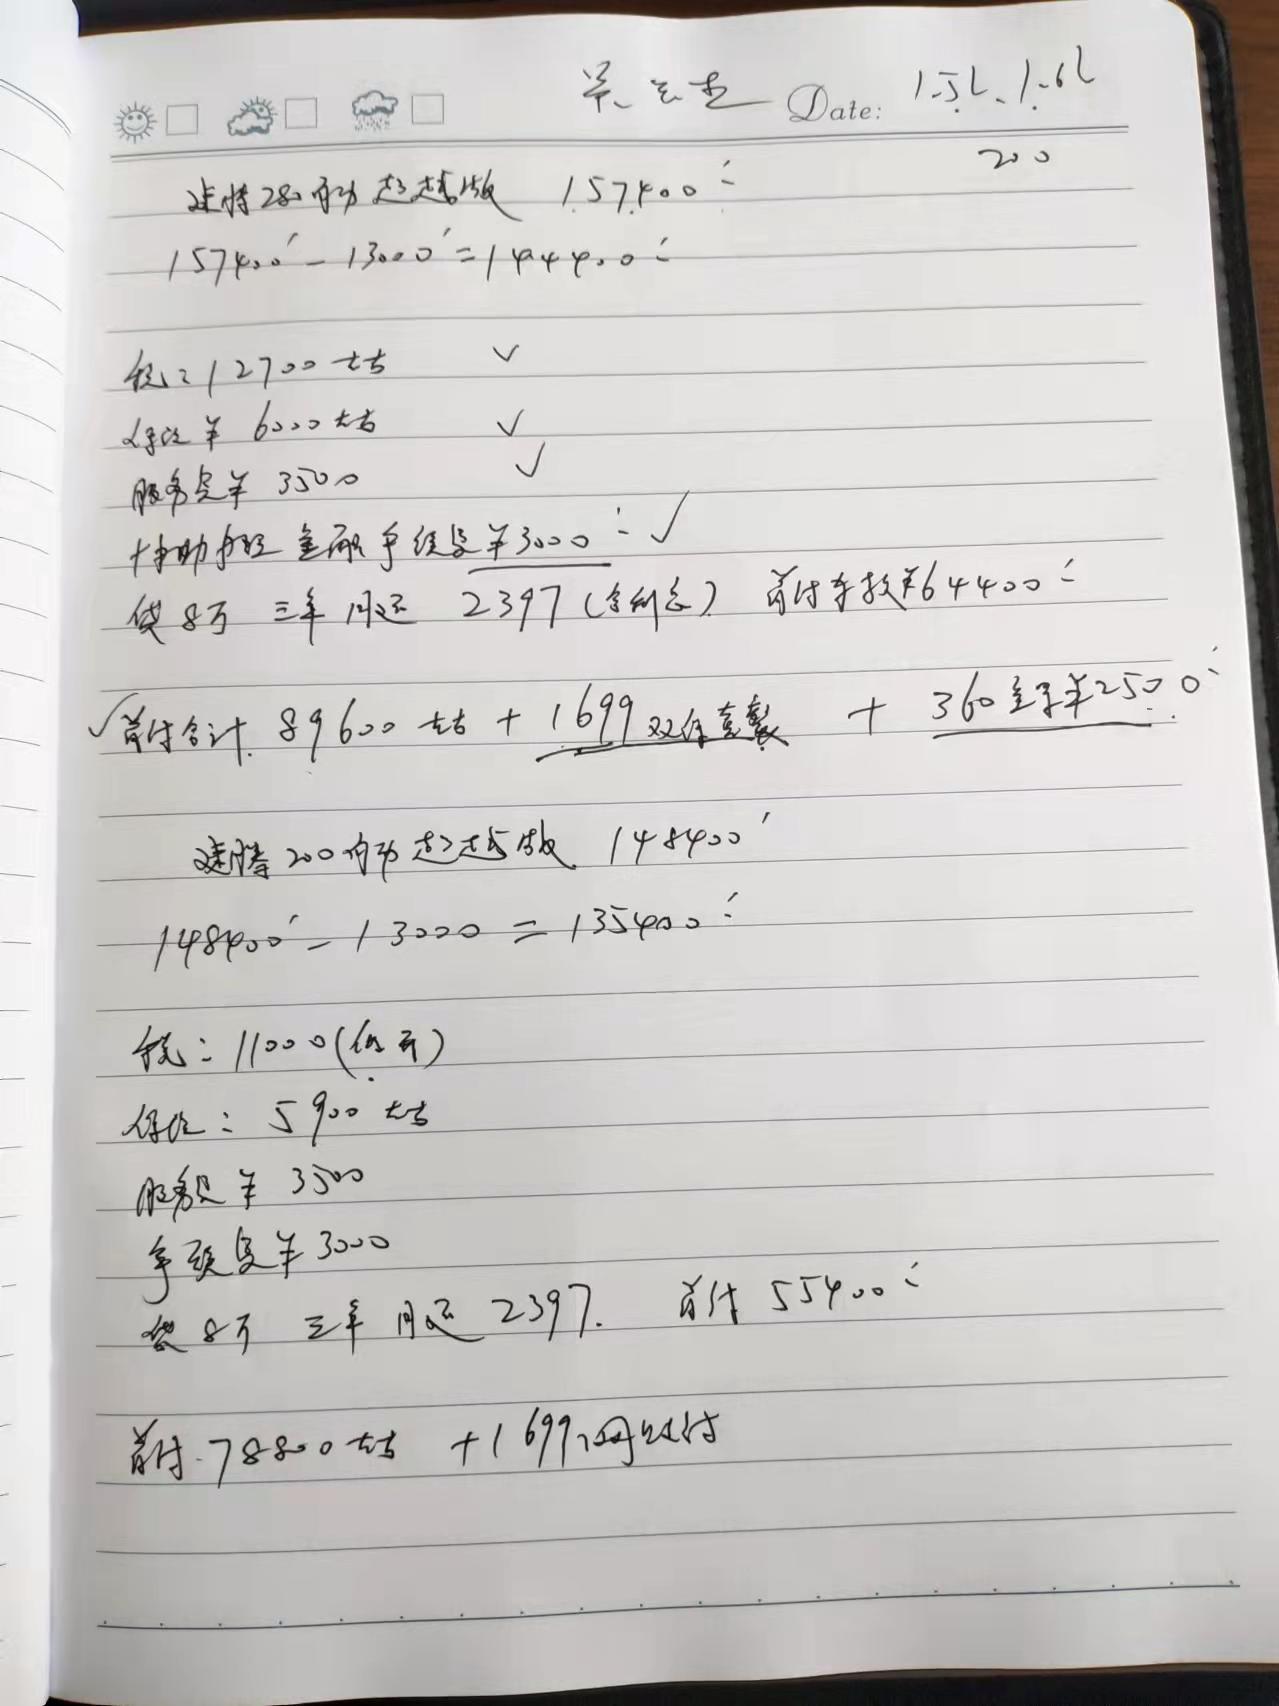 Date: 1.5L、1.6L
200
速腾280自动超越版 157400
157400 - 13000 = 144400
税: 12700左右 ✓
保险¥ 6000左右 ✓
服务费¥ 3500 ✓
协助办理金融手续费¥3000 ✓
贷8万 三年 月还 2397(含利息) 首付车款¥64400
✓首付合计 89600左右 + 1699双保套餐 + 360全景¥2500
速腾200自动超越版 148400
148400 - 13000 = 135400
税: 11000(低开)
保险: 5900左右
服务费¥ 3500
手续费¥3000
贷8万 三年 月还 2397. 首付 55400
首付 78800左右 +1699